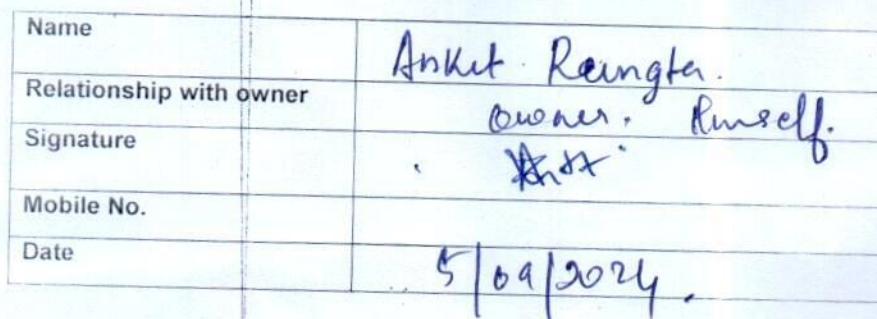 Name Ankit Rungta.
Relationship with owner owner. himself.
Signature
Mobile No.
Date 5/09/2024.